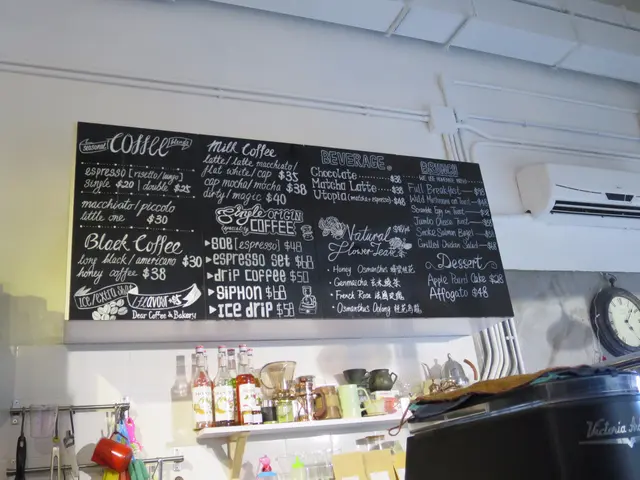 Seasonal COFFEE blends
espresso [risetto/lungo]
single $20 | double $25
macchiato / piccolo
little one $30
Black Coffee
long black / americano $30
honey coffee $38
ICE/EXTRA SHOT
FLAVOR +$5
Dear Coffee & Bakers!
Milk Coffee
latte / latte macchiato /
flat white / cap $35
cap mocha / mocha $38
dirty / magic $40
Single ORIGIN
specialty COFFEE
SOE [espresso] $48
espresso set $68
drip coffee $50
siphon $68
Ice drip $58
BEVERAGE
Chocolate $38
Matcha Latte $38
Utopia (matcha + espresso) $48
Natural
Flower Tea
Honey Osmanthus
Genmaicha
French Rose
Osmanthus Oolong
BRUNCH
Full Breakfast
Wild Mushroom on Toast
Scramble Egg on Toast
Jumbo Cheese Toast
Smoke Salmon Bagel
Grilled Chicken Salad
Dessert
Apple Rum Cake $38
Affogato $48
Victoria